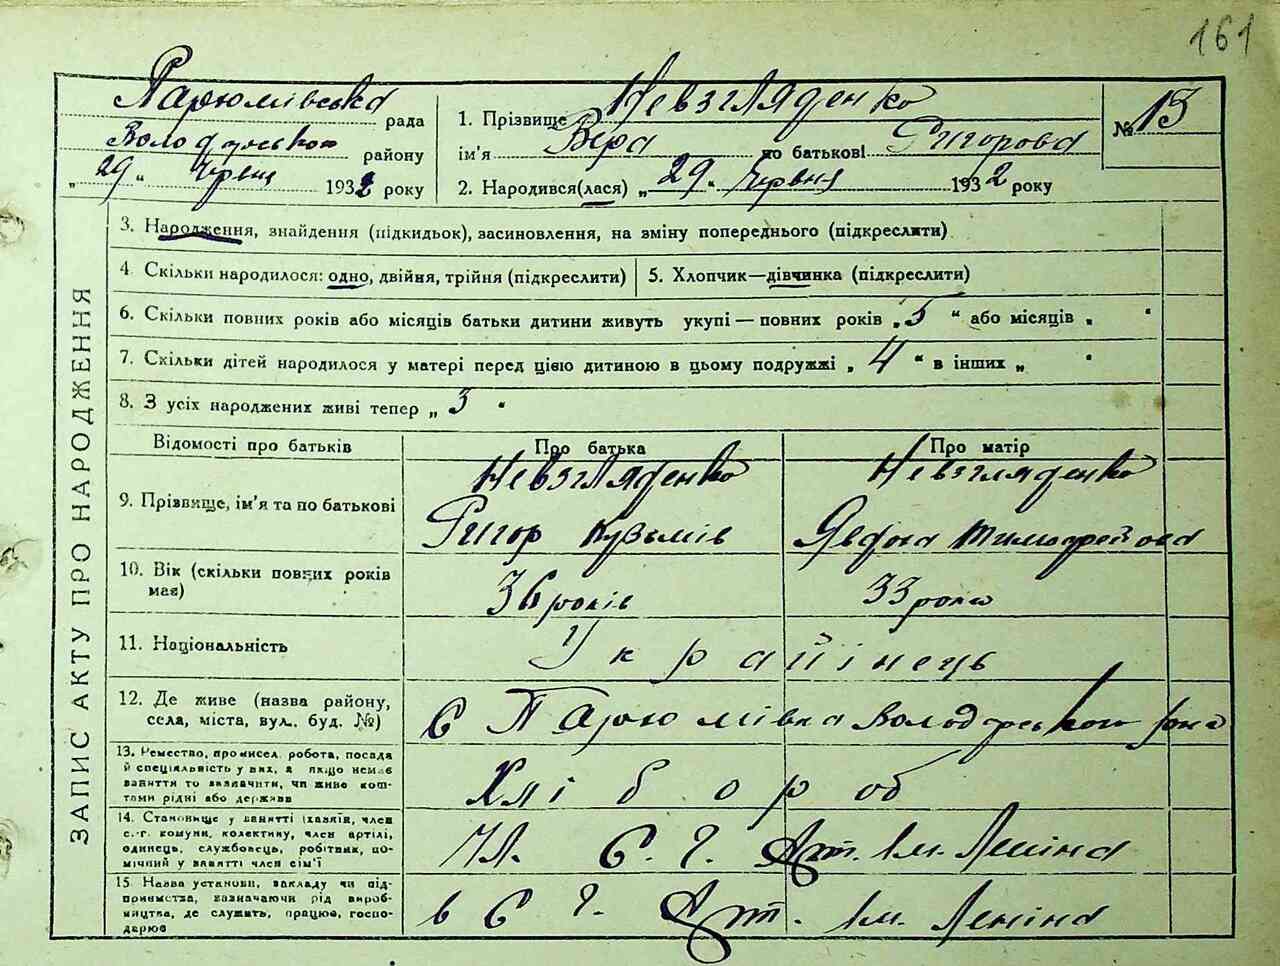 161
Пархомівська рада
Володарського району
„29“ Червня 1932 року
1. Прізвище Невзгляденко
ім'я Вера по батькові Ригорова
2. Народився(лася) „29“ Червня 1932 року
№ 15
ЗАПИС АКТУ ПРО НАРОДЖЕННЯ
3. Народження, знайдення (підкидьок), засиновлення, на зміну попереднього (підкреслити)
4 Скільки народилося: одно, двійня, трійня (підкреслити)
5. Хлопчик—дівчинка (підкреслити)
6. Скільки повних років або місяців батьки дитини живуть укупі — повних років „5“ або місяців „ “
7. Скільки дітей народилося у матері перед цією дитиною в цьому подружжі „4“ в інших „ “
8. З усіх народжених живі тепер „3“
Відомості про батьків Про батька Про матір
9. Прізвище, ім'я та по батькові
Невзгляденко
Ригор Кузьмів
Невзгляденко
Явдоха Тимофейовна
10. Вік (скільки повних років має)
36 років 33 роки
11. Національність
Украйінець
12. Де живе (назва району,
села, міста, вул., буд. №)
С Пархомівка Володарського р-на
13. Ремество, промисел, робота, посада
й спеціяльність у них, а якщо немає
заняття то зазначити, чи живе кош-
тами рідні або держави
Хлібороб
14. Становище у занятті (хазяїн, член
с.-г. комуни, колективу, член артілі,
одинець, службовець, робітник, по-
мічний у занятті член сім'ї
Чл. С. Г. Арт. Ім. Леніна
15. Назва установи, закладу чи під-
приємства, зазначаючи рід вироб-
ництва, де служить, працює, госпо-
дарює
в С Г. Арт. Ім. Леніна